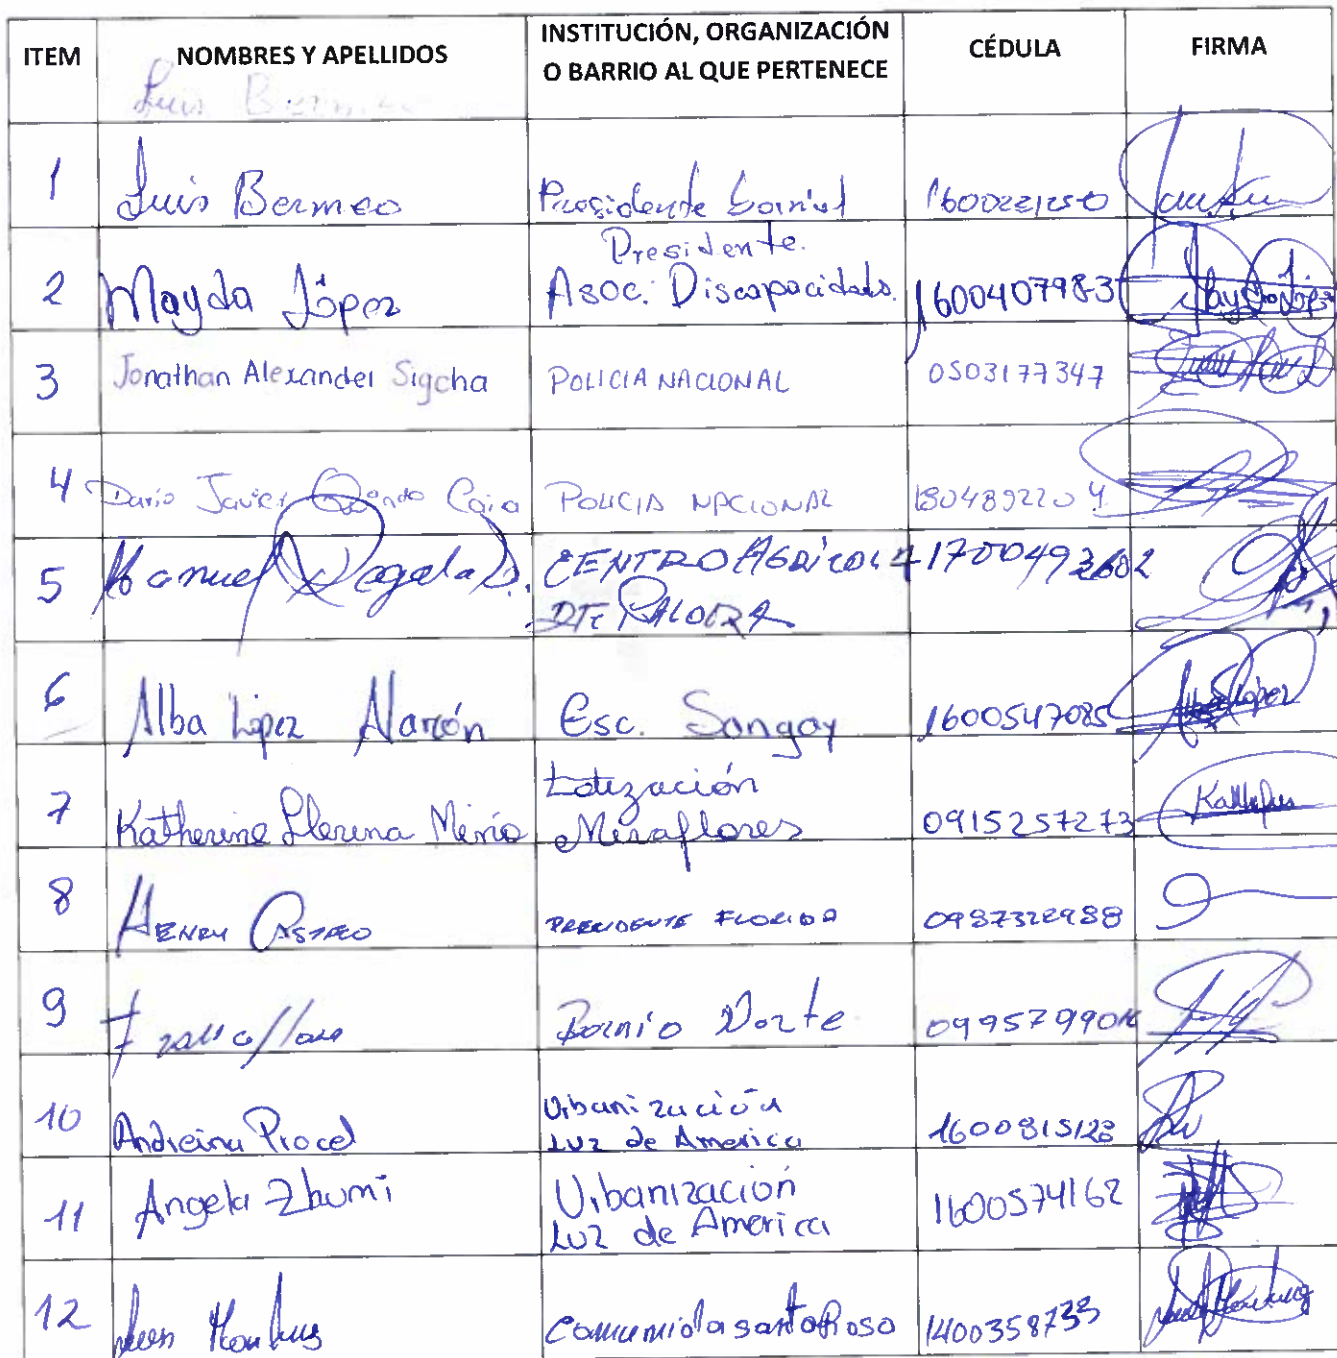 ITEM NOMBRES Y APELLIDOS INSTITUCIÓN, ORGANIZACIÓN O BARRIO AL QUE PERTENECE CÉDULA FIRMA
Luis Bermeo
1 Luis Bermeo Presidente barrial
2 Mayda López Presidente. Asoc. Discapacidads. 1600407983
3 Jonathan Alexander Sigcha POLICIA NACIONAL 0503177347
4 Dario Javier Caia POLICIA NACIONAL 1804892204
5 Manuel CENTRO AGRICOLA DE PALORA 1700493602
6 Alba López Alarcón Esc. Sangay 1600547085 López
7 Katherine Llerena Merio Lotización Miraflores 0915257273
8 HENRY CASTRO PRESIDENTE FLORIDA 0987322988
9 Barrio Norte
10 Andreina Procel Urbanización Luz de America 1600815123
11 Angela Zhumi Urbanización Luz de America 1600574162
12 1400358733